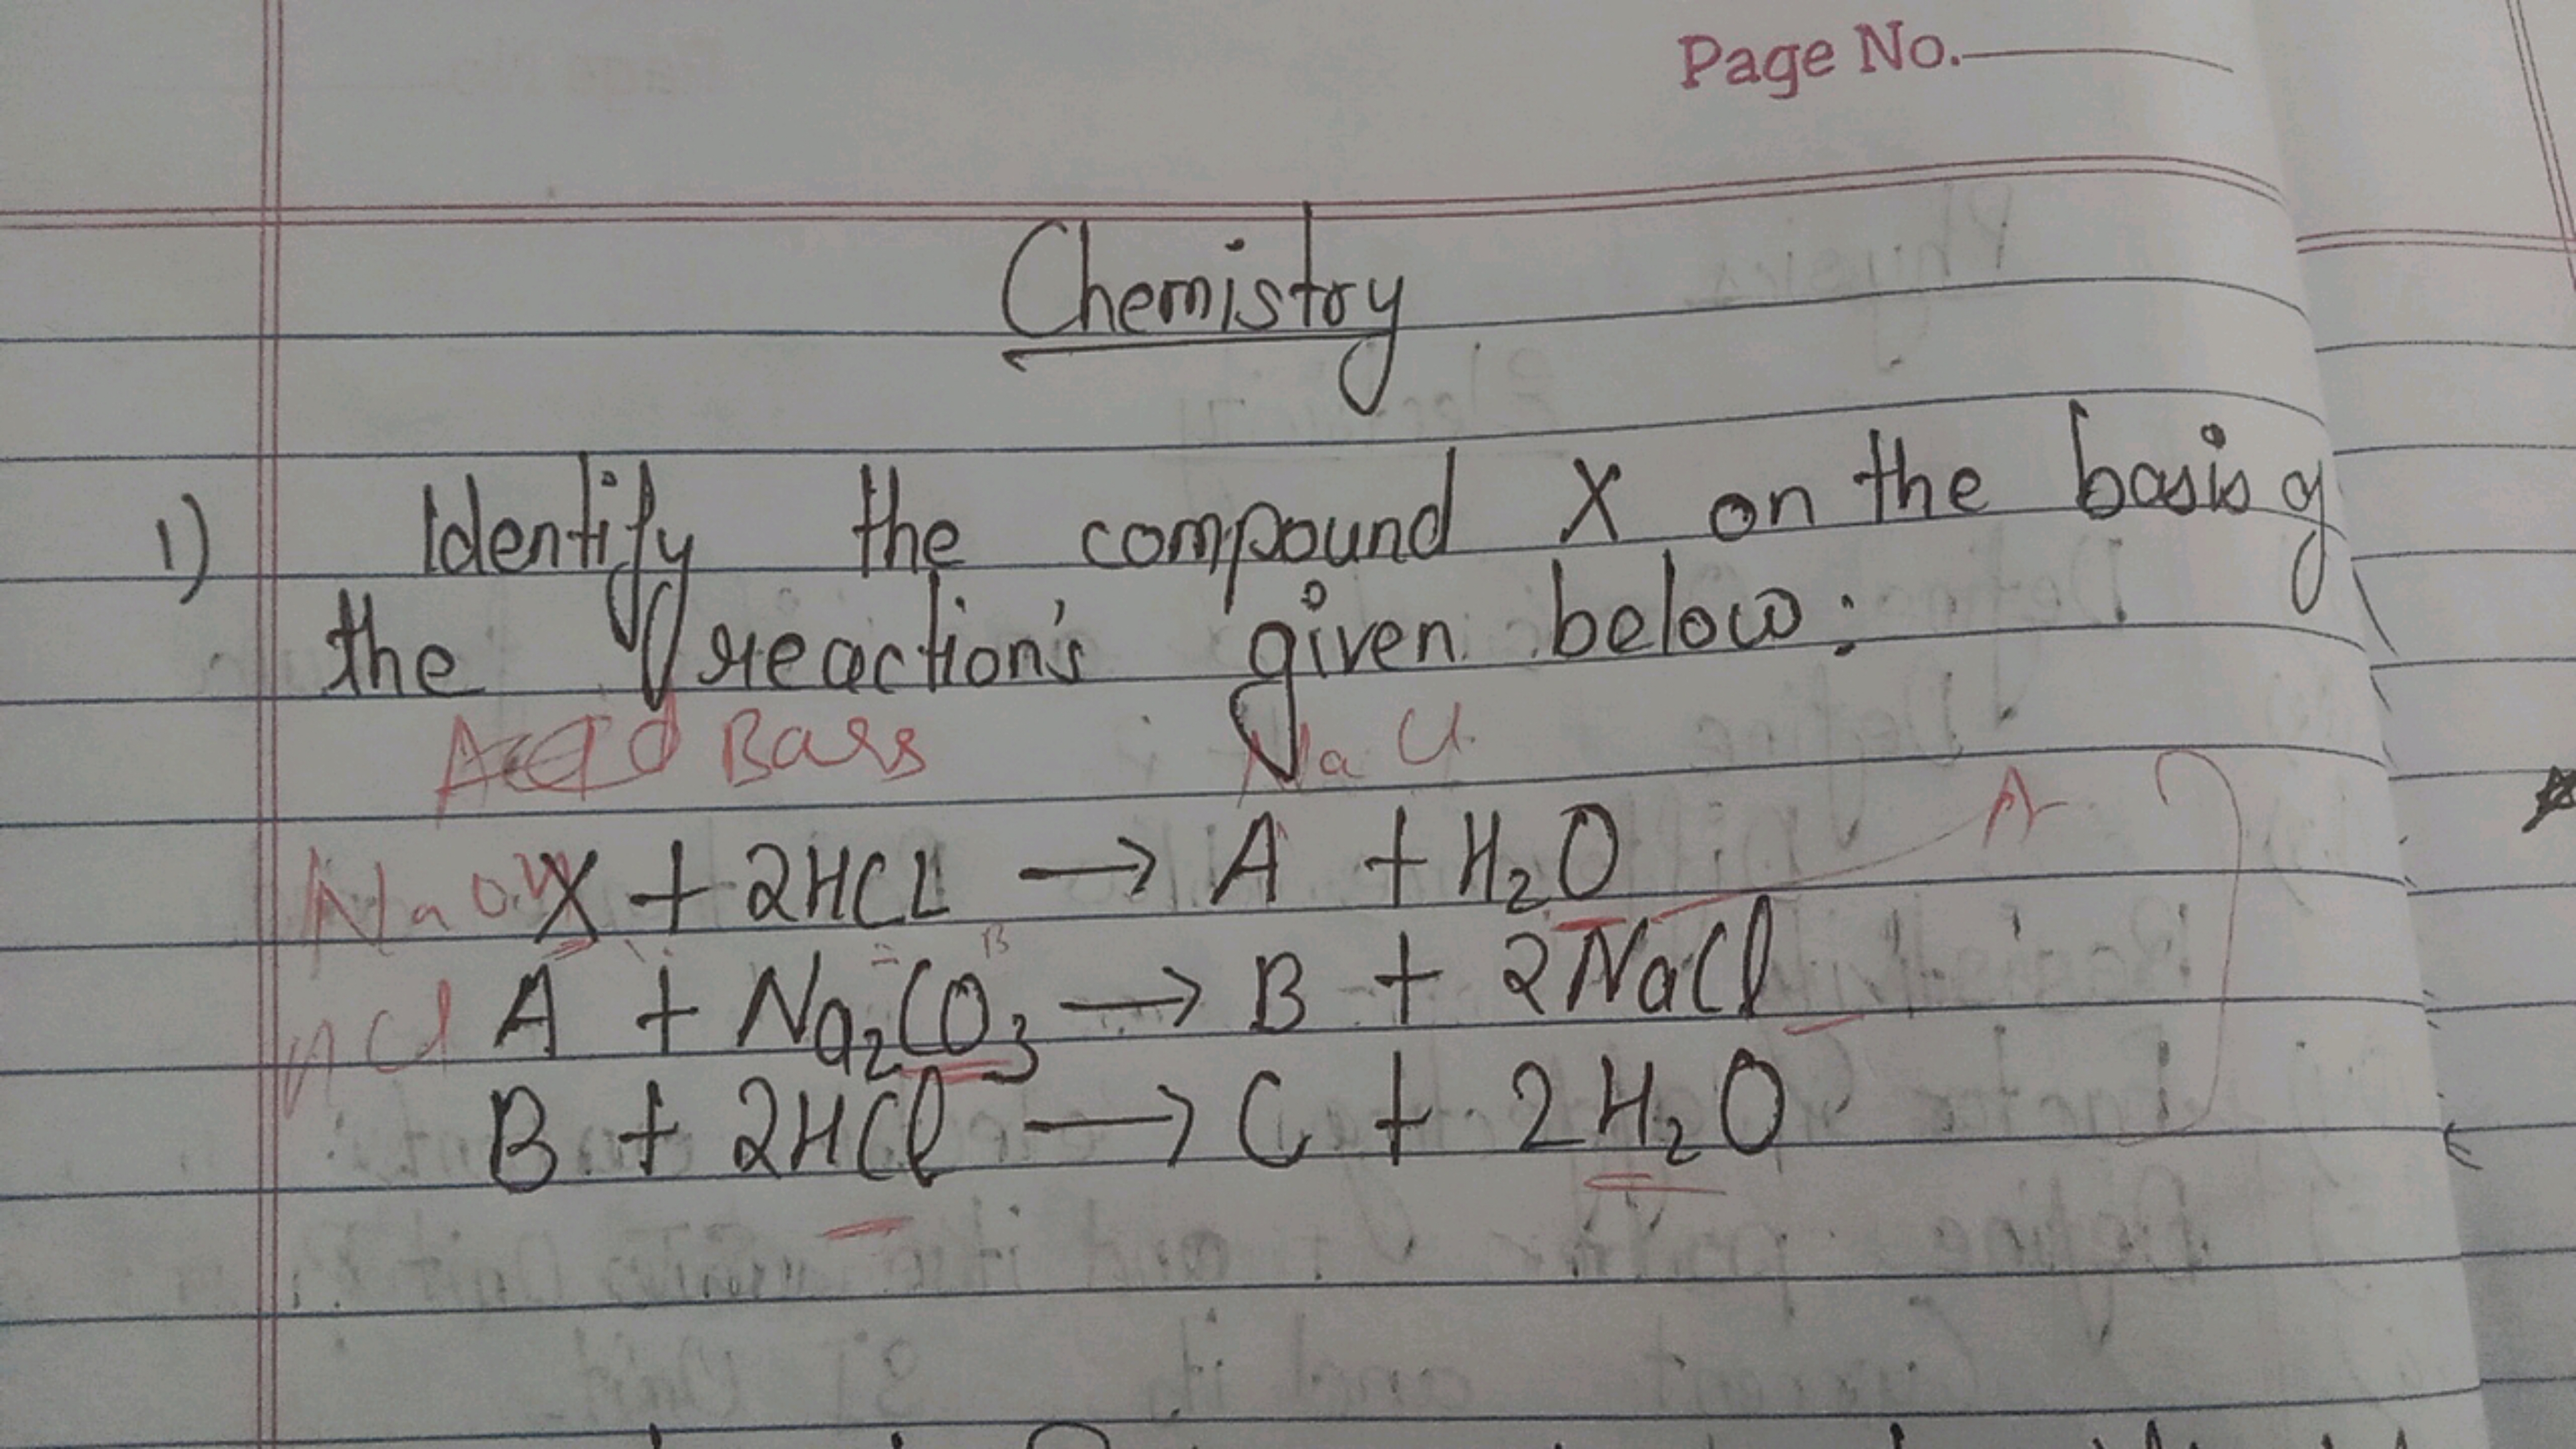 Page No.
Chemistry
1) Identify the compound X on the basis of
the reaction's given below:
Acid Bass NaCl
NaOH X + 2HCL → A + H₂O A
HCl A + Na₂CO₃ → B + 2NaCl
B + 2HCl → C + 2H₂O